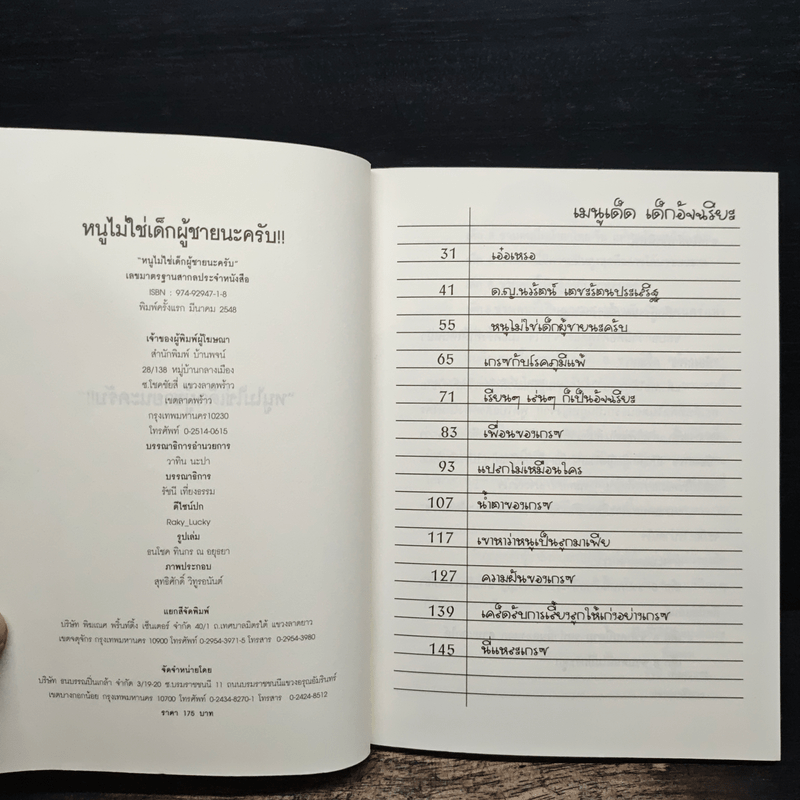 หนูไม่ใช่เด็กผู้ชายนะครับ!!
"หนูไม่ใช่เด็กผู้ชายนะครับ"
เลขมาตรฐานสากลประจำหนังสือ
ISBN : 974-92947-1-8
พิมพ์ครั้งแรก มีนาคม 2548
เจ้าของผู้พิมพ์ผู้โฆษณา
สำนักพิมพ์ บ้านพจน์
28/138 หมู่บ้านกลางเมือง
ซ.โชคชัยสี่ แขวงลาดพร้าว
เขตลาดพร้าว
กรุงเทพมหานคร10230
โทรศัพท์ 0-2514-0615
บรรณาธิการอำนวยการ
วาทิน นะปา
บรรณาธิการ
รัชนี เที่ยงธรรม
ดีไซน์ปก
Raky_Lucky
รูปเล่ม
ธนโชค ทินกร ณ อยุธยา
ภาพประกอบ
สุทธิศักดิ์ วิทูรอนันต์
แยกสีจัดพิมพ์
บริษัท พิฆเณศ พริ้นท์ติ้ง เซ็นเตอร์ จำกัด 40/1 ถ.เทศบาลมิตรใต้ แขวงลาดยาว
เขตจตุจักร กรุงเทพมหานคร 10900 โทรศัพท์ 0-2954-3971-5 โทรสาร 0-2954-3980
จัดจำหน่ายโดย
บริษัท ธนบรรณปิ่นเกล้า จำกัด 3/19-20 ซ.บรมราชชนนี 11 ถนนบรมราชชนนีแขวงอรุณอัมรินทร์
เขตบางกอกน้อย กรุงเทพมหานคร 10700 โทรศัพท์ 0-2434-8270-1 โทรสาร 0-2424-8512
ราคา 175 บาท
เมนูเด็ด เด็กอัจฉริยะ
31 เอ๋อเหรอ
41 ด.ญ.นวรัตน์ เตชะรัตนประเสริฐ
55 หนูไม่ใช่เด็กผู้ชายนะครับ
65 เกรซกับโรคภูมิแพ้
71 เรียนๆ เล่นๆ ก็เป็นอัจฉริยะ
83 เพื่อนของเกรซ
93 แปลกไม่เหมือนใคร
107 น้ำตาของเกรซ
117 เขาหาว่าหนูเป็นลูกมาเฟีย
127 ความฝันของเกรซ
139 เคล็ดลับการเลี้ยงลูกให้เก่งอย่างเกรซ
145 นี่แหละเกรซ